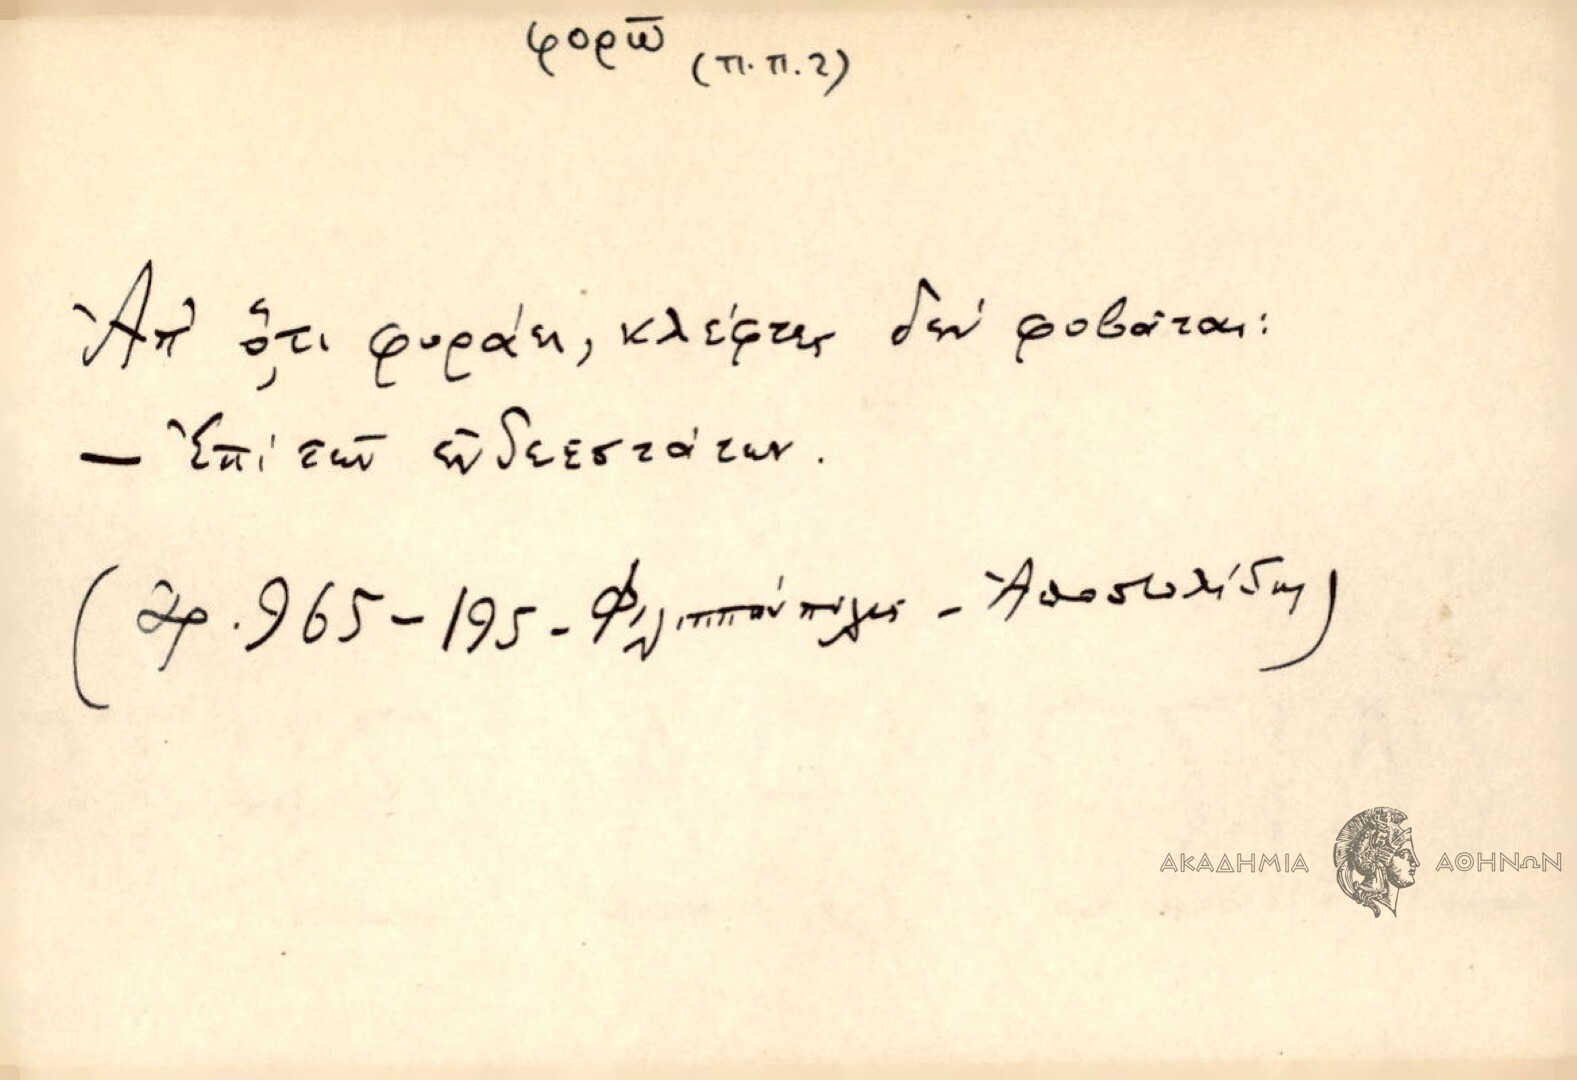 φορῶ (π.π.2)
Ἀπ' ὅ,τι φυράει, κλέφτες δὲν φοβᾶται:
— Ἐπὶ τῶν ἐνδεεστάτων.
(ἀρ. 965-195- Φιλιππούπολις - Ἀποστολίδης)
ΑΚΑΔΗΜΙΑ ΑΘΗΝΩΝ